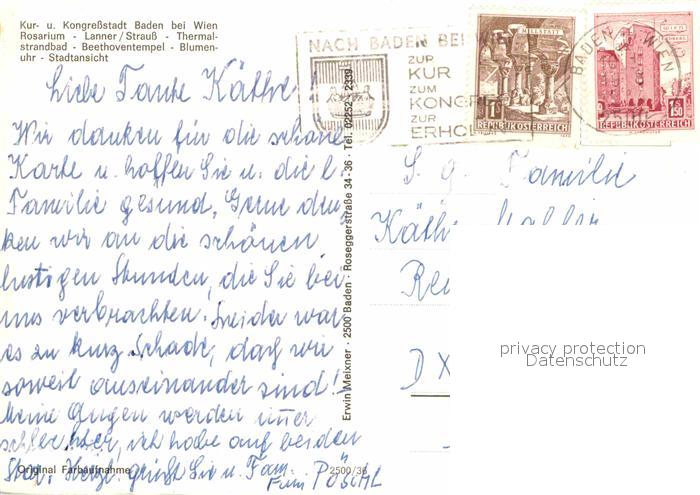 Kur- u. Kongreßstadt Baden bei Wien
Rosarium - Lanner/Strauß - Thermal-
strandbad - Beethoventempel - Blumen-
uhr - Stadtansicht
NACH BADEN BEI
ZUR
KUR
ZUM
KONGR
ZUR
ERHOL
MILLSTATT
1
REPUBLIK ÖSTERREICH
BADEN WIEN
WIEN
ERDBERG
1.50
REPUBLIK ÖSTERREICH
Liebe Tante Käthe
Wir danken für die schöne
Karte u. hoffen Sie u. die l.
Familie gesund, Gerne den
ken wir an die schönen
lustigen Stunden, die Sie bei
uns verbrachten. Leider war
es zu kurz. Schade, daß wir
soweit auseinander sind!
Meine Augen werden imer
schlechter, ich habe auf beiden
Star. Herzl. grüßt Sie u. Fam.
Fam PÖSCHL
S. g. Familie
Käth
Re
D X
Erwin Meixner · 2500 Baden · Roseggerstraße 34-36 · Tel. 02252 · 2339
Original Farbaufnahme
2500/36
privacy protection
Datenschutz